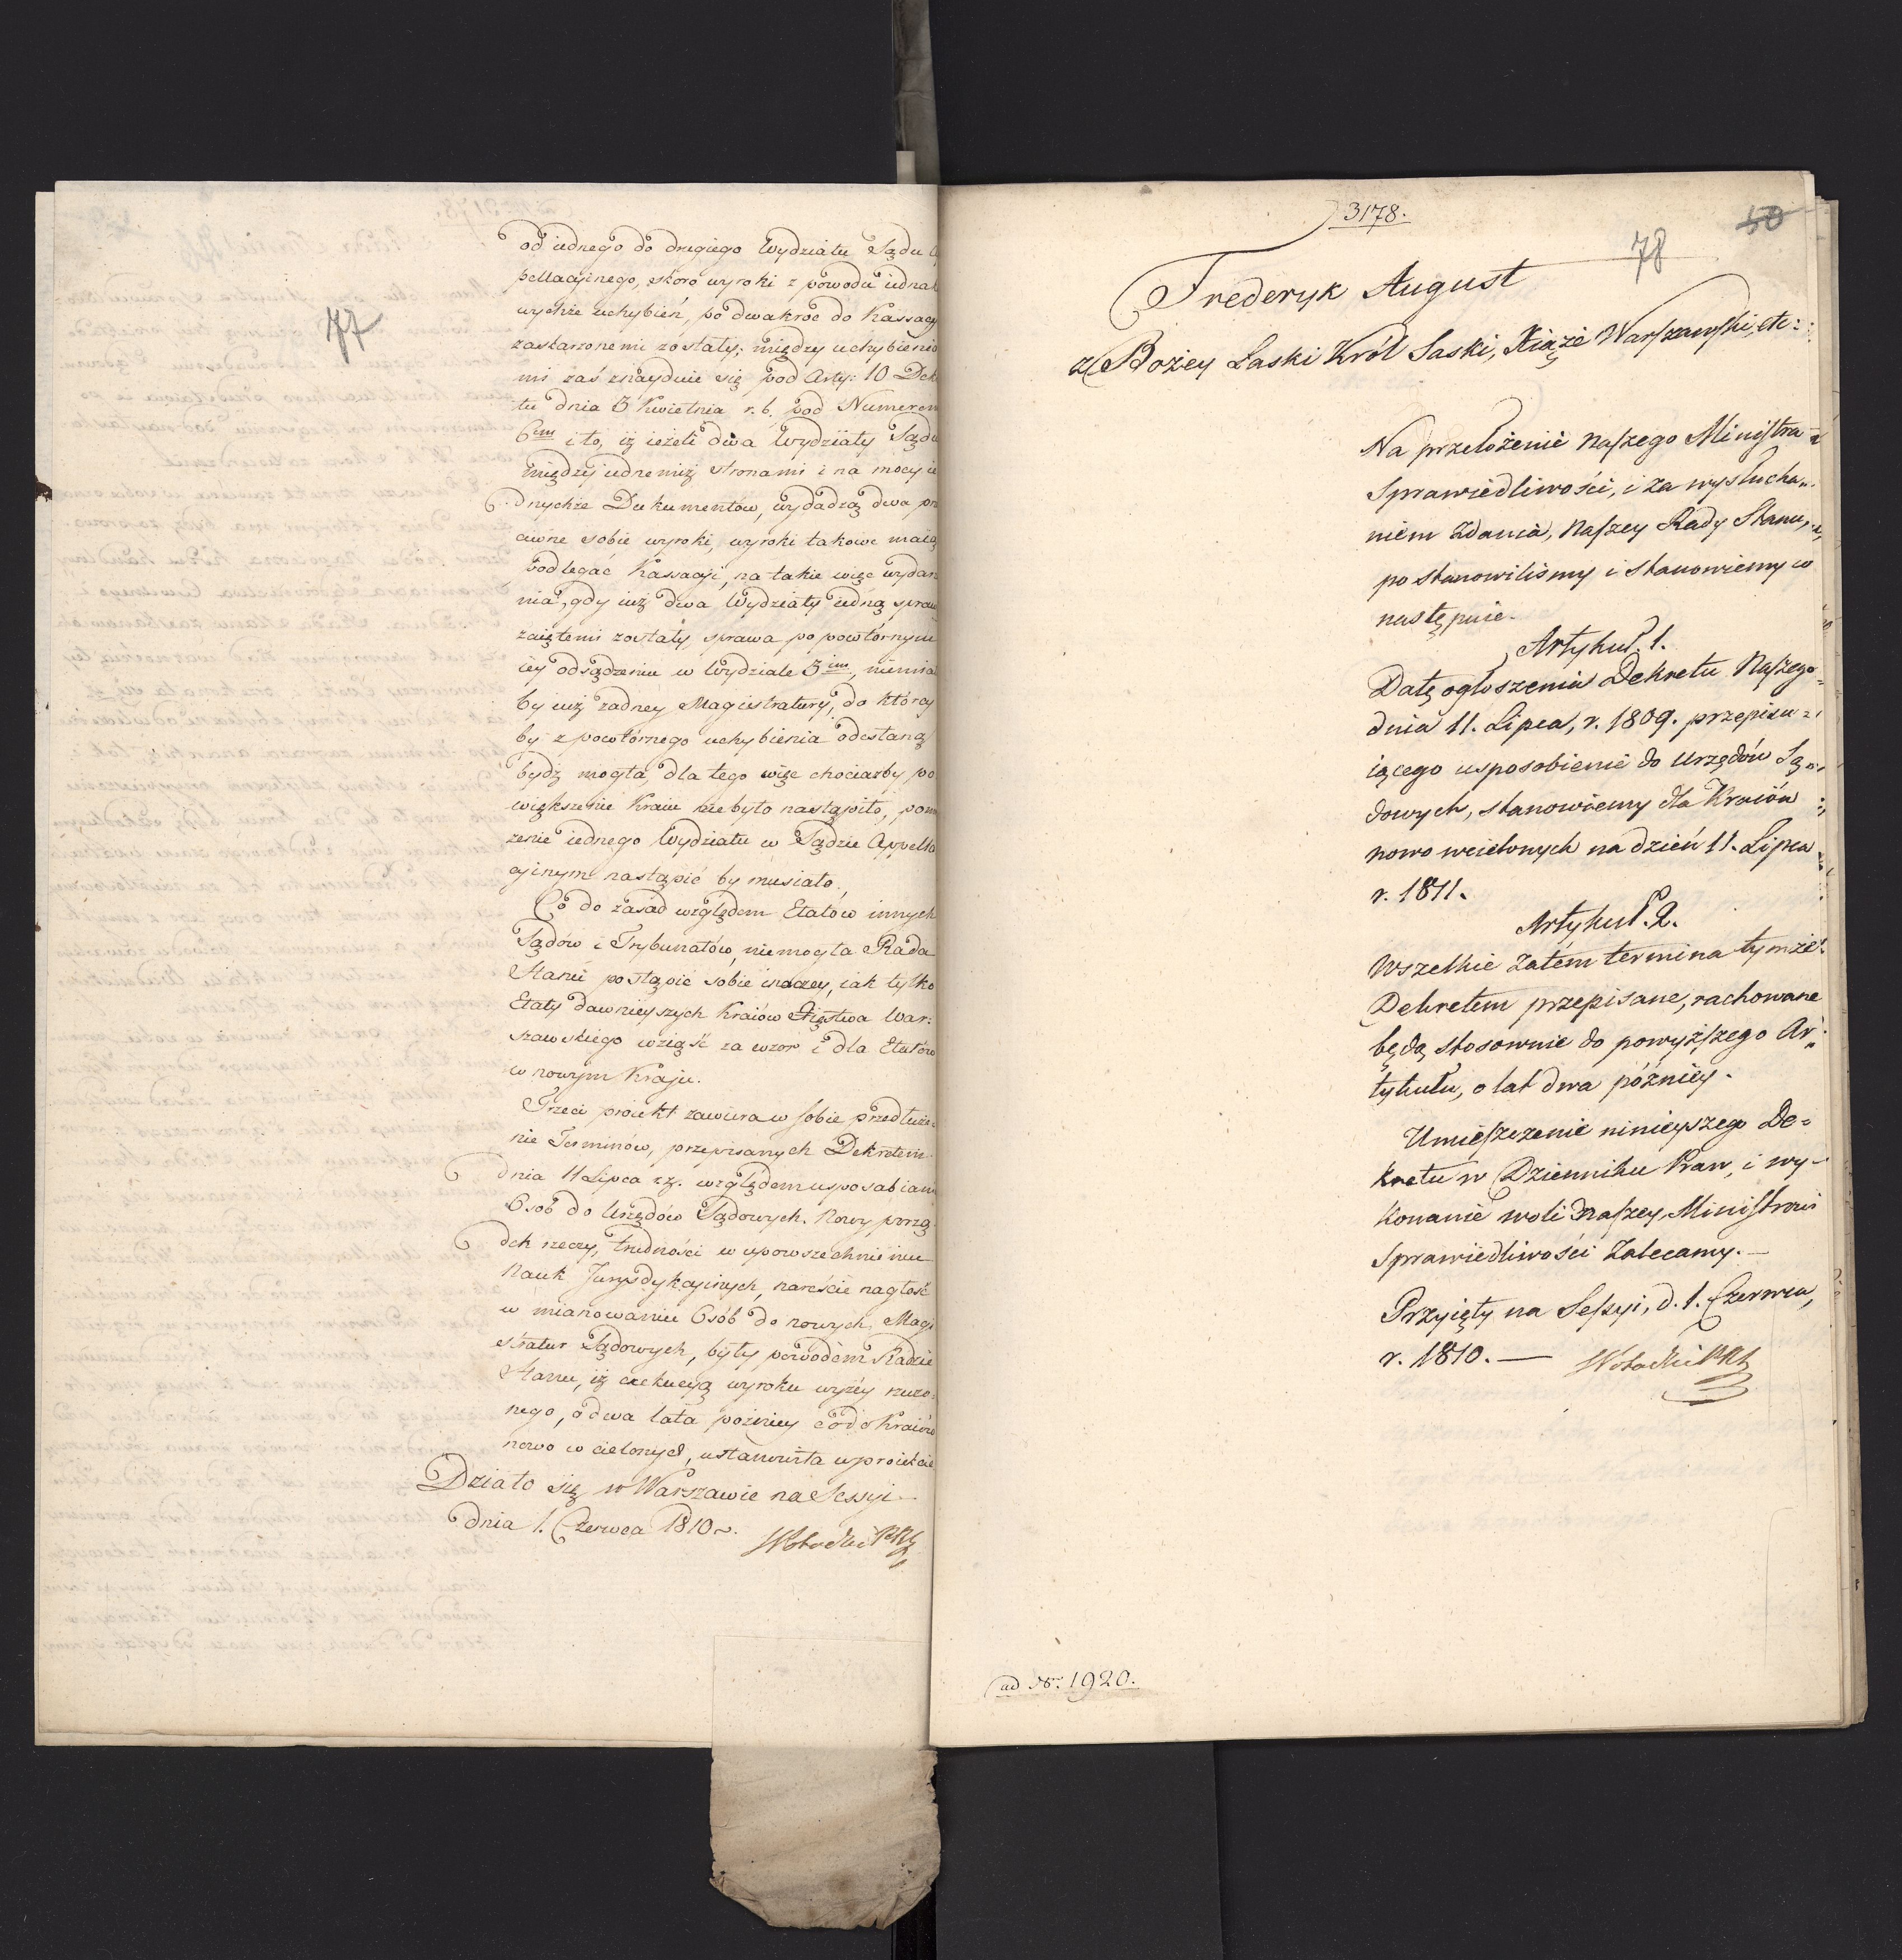 77
od iednego do drugiego Wydziału Sądu A
pellacyinego, skoro wyroki z powodu iedna
wychże uchybień, po dwakroć do Kassacy
zaskarżonemi zostały; między uchybienia
mi zaś znayduie się pod Arty: 10 Dek
tu dnia 3 Kwietnia r. b. pod Numerem
6ym i to, iż ieżeli dwa Wydziały Sądu
między iednemiż stronami i na mocy ie
dnychże Dokumentów, wydadzą dwa prze
ciwne sobie wyroki, wyroki takowe maią
podlegać Kassacyi, na takie więc wydarz
nia, gdy iuż dwa Wydziały iedną spraw
zaiętemi zostały, sprawa po powtórnym
iey odsądzeniu w Wydziale 3im, niemia
by iuż żadney Magistratury, do którey
by z powtórnego uchybienia odesłaną
bydź mogła, dla tego więc chociażby po
większenie Kraiu nie było nastąpiło, pomn
żenie iednego Wydziału w Sądzie Appella
cyinym nastąpić by musiało.
Co do zasad względem Etatów innych
Sądów i Trybunałów, niemogła Rada
Stanu postąpić sobie inaczey, iak tylko
Etaty dawnieyszych Kraiów Xięstwa War:
szawskiego wziąść za wzor i dla Etatów
w nowym Kraju.
Trzeci proiekt zawiera w sobie przedłuże-
nie Terminów, przepisanych Dekretem
dnia 11 Lipca r.z. względem usposabiani
Osób do Urzędów Sądowych. Nowy porzą
dek rzeczy, trudności w upowszechnieniu
Nauk Jurysdykcyinych, nareście nagłość
w mianowaniu Osób do nowych Magi
stratur Sądowych, były powodem Radzie
Stanu, iż exekucyą wyroku wyżey rzeczo:
nego, o dwa lata poźniey co do Kraiów
nowo wcielonych, ustanowiła w proiekcie
Działo się w Warszawie na Sessyi
dnia 1. Czerwca 1810 r.
3178.
50
78
Frederyk August
z Bożey Łaski Król Saski, Xiążę Warszawski, etc:
Na przełożenie naszego Ministra
Sprawiedliwości, i za wysłucha„
niem zdania, Naszey Rady Stanu,
postanowiliśmy i stanowiemy co
następuie.
Artykuł. 1.
Datę ogłoszenia Dekretu Naszego
dnia 11. Lipca, r. 1809. przepisu=
iącego usposobienie do Urzędów Są„
dowych, stanowiemy dla Kraiów
nowo wcielonych na dzień 11. Lipca
r. 1811.
Artykuł. 2.
Wszelkie zatém termina tymże
Dekretem przepisane, rachowane
będą stosownie do powyższego Ar„
tykułu, o lat dwa późniey.
Umieszczenie ninieyszego De=
kretu w Dzienniku Praw, i wy-
konanie woli naszey, Ministrowi
Sprawiedliwości Zalecamy.—
Przyięty na Sessyi, d. 1. Czerwca,
r. 1810. —
ad Nr. 1920.